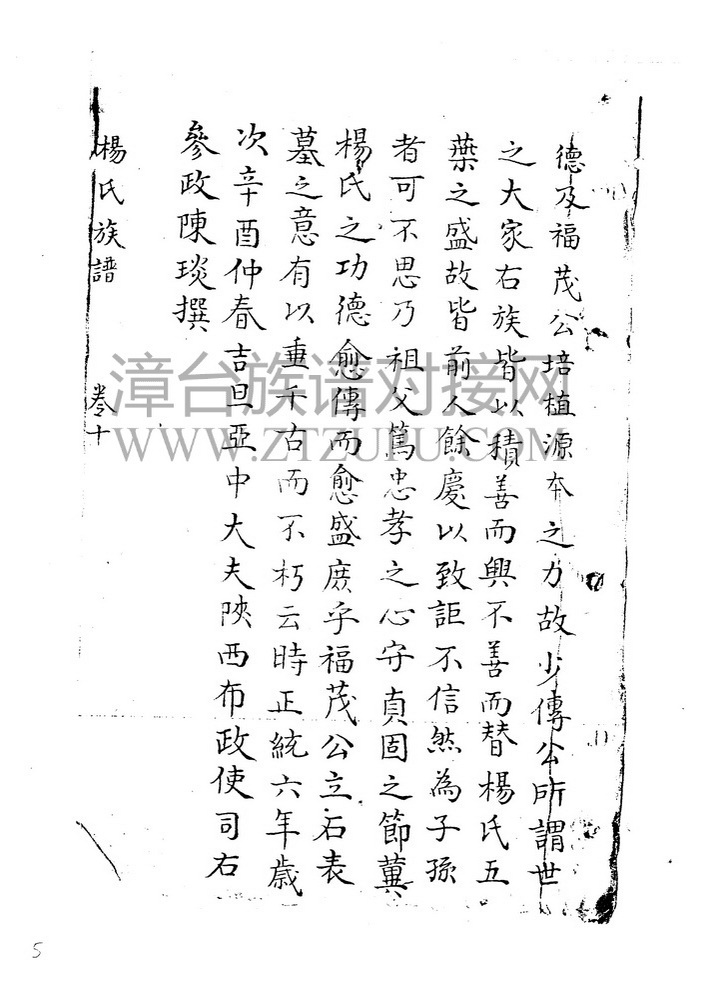 德及福茂公培植源本之力故少傳公所謂世
之大家右族皆以積善而興不善而替楊氏五
葉之盛故皆前人餘慶以致詎不信然為子孫
者可不思乃祖父篤忠孝之心守貞固之節冀
楊氏之功德愈傳而愈盛庶乎福茂公立石表
墓之意有以垂千古而不朽云時正統六年歲
次辛酉仲春吉旦亞中大夫陝西布政使司右
參政陳琰撰
楊氏族譜 卷十
漳台族谱对接网
WWW.ZTZUPU.COM
5